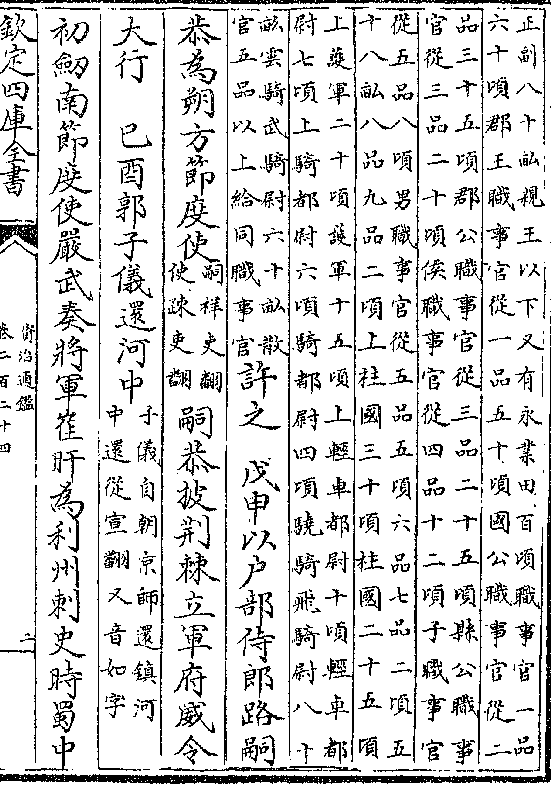 正副八十畝親王以下又有永業田百頃職事官一品
六十頃郡王職事官從一品五十頃國公職事官從二
品三十五頃郡公職事官從三品二十五頃縣公職事
官從三品二十頃侯職事官從四品十二頃子職事官
從五品八頃男職事官從五品五頃六品七品二頃五
十八畝八品九品二頃上柱國三十頃柱國二十五頃
上䕶軍二十頃䕶軍十五頃上輕車都尉十頃輕車都
尉七頃上騎都尉六頃騎都尉四頃驍騎飛騎尉八十
畝雲騎武騎尉六十畝散
官五品以上給同職事官
許之 戊申以户部侍郎路嗣
恭為朔方節度使
嗣祥吏翻
使疎吏翻
嗣恭披荆棘立軍府威令
大行 己酉郭子儀還河中
子儀自朝京師還鎮河
中還從宣翻又音如字
初劒南節度使嚴武奏將軍崔旰為利州刺史時蜀中
欽定四庫全書
資治通鑑
卷二百二十四
二